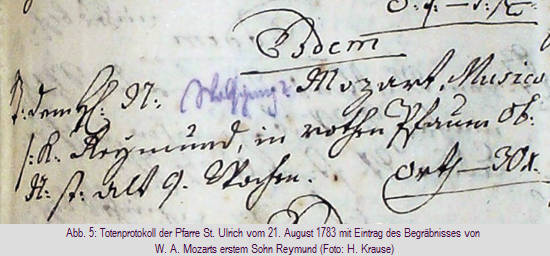 Eodem
dem H: N: Wolfgang Mozart, Musico
s: K: Reymund, in rothen Pfauen Ob:
N: st: alt 9. Wochen. 30x.
Eodem
Abb. 5: Totenprotokoll der Pfarre St. Ulrich vom 21. August 1783 mit Eintrag des Begräbnisses von
W. A. Mozarts erstem Sohn Reymund (Foto: H. Krause)